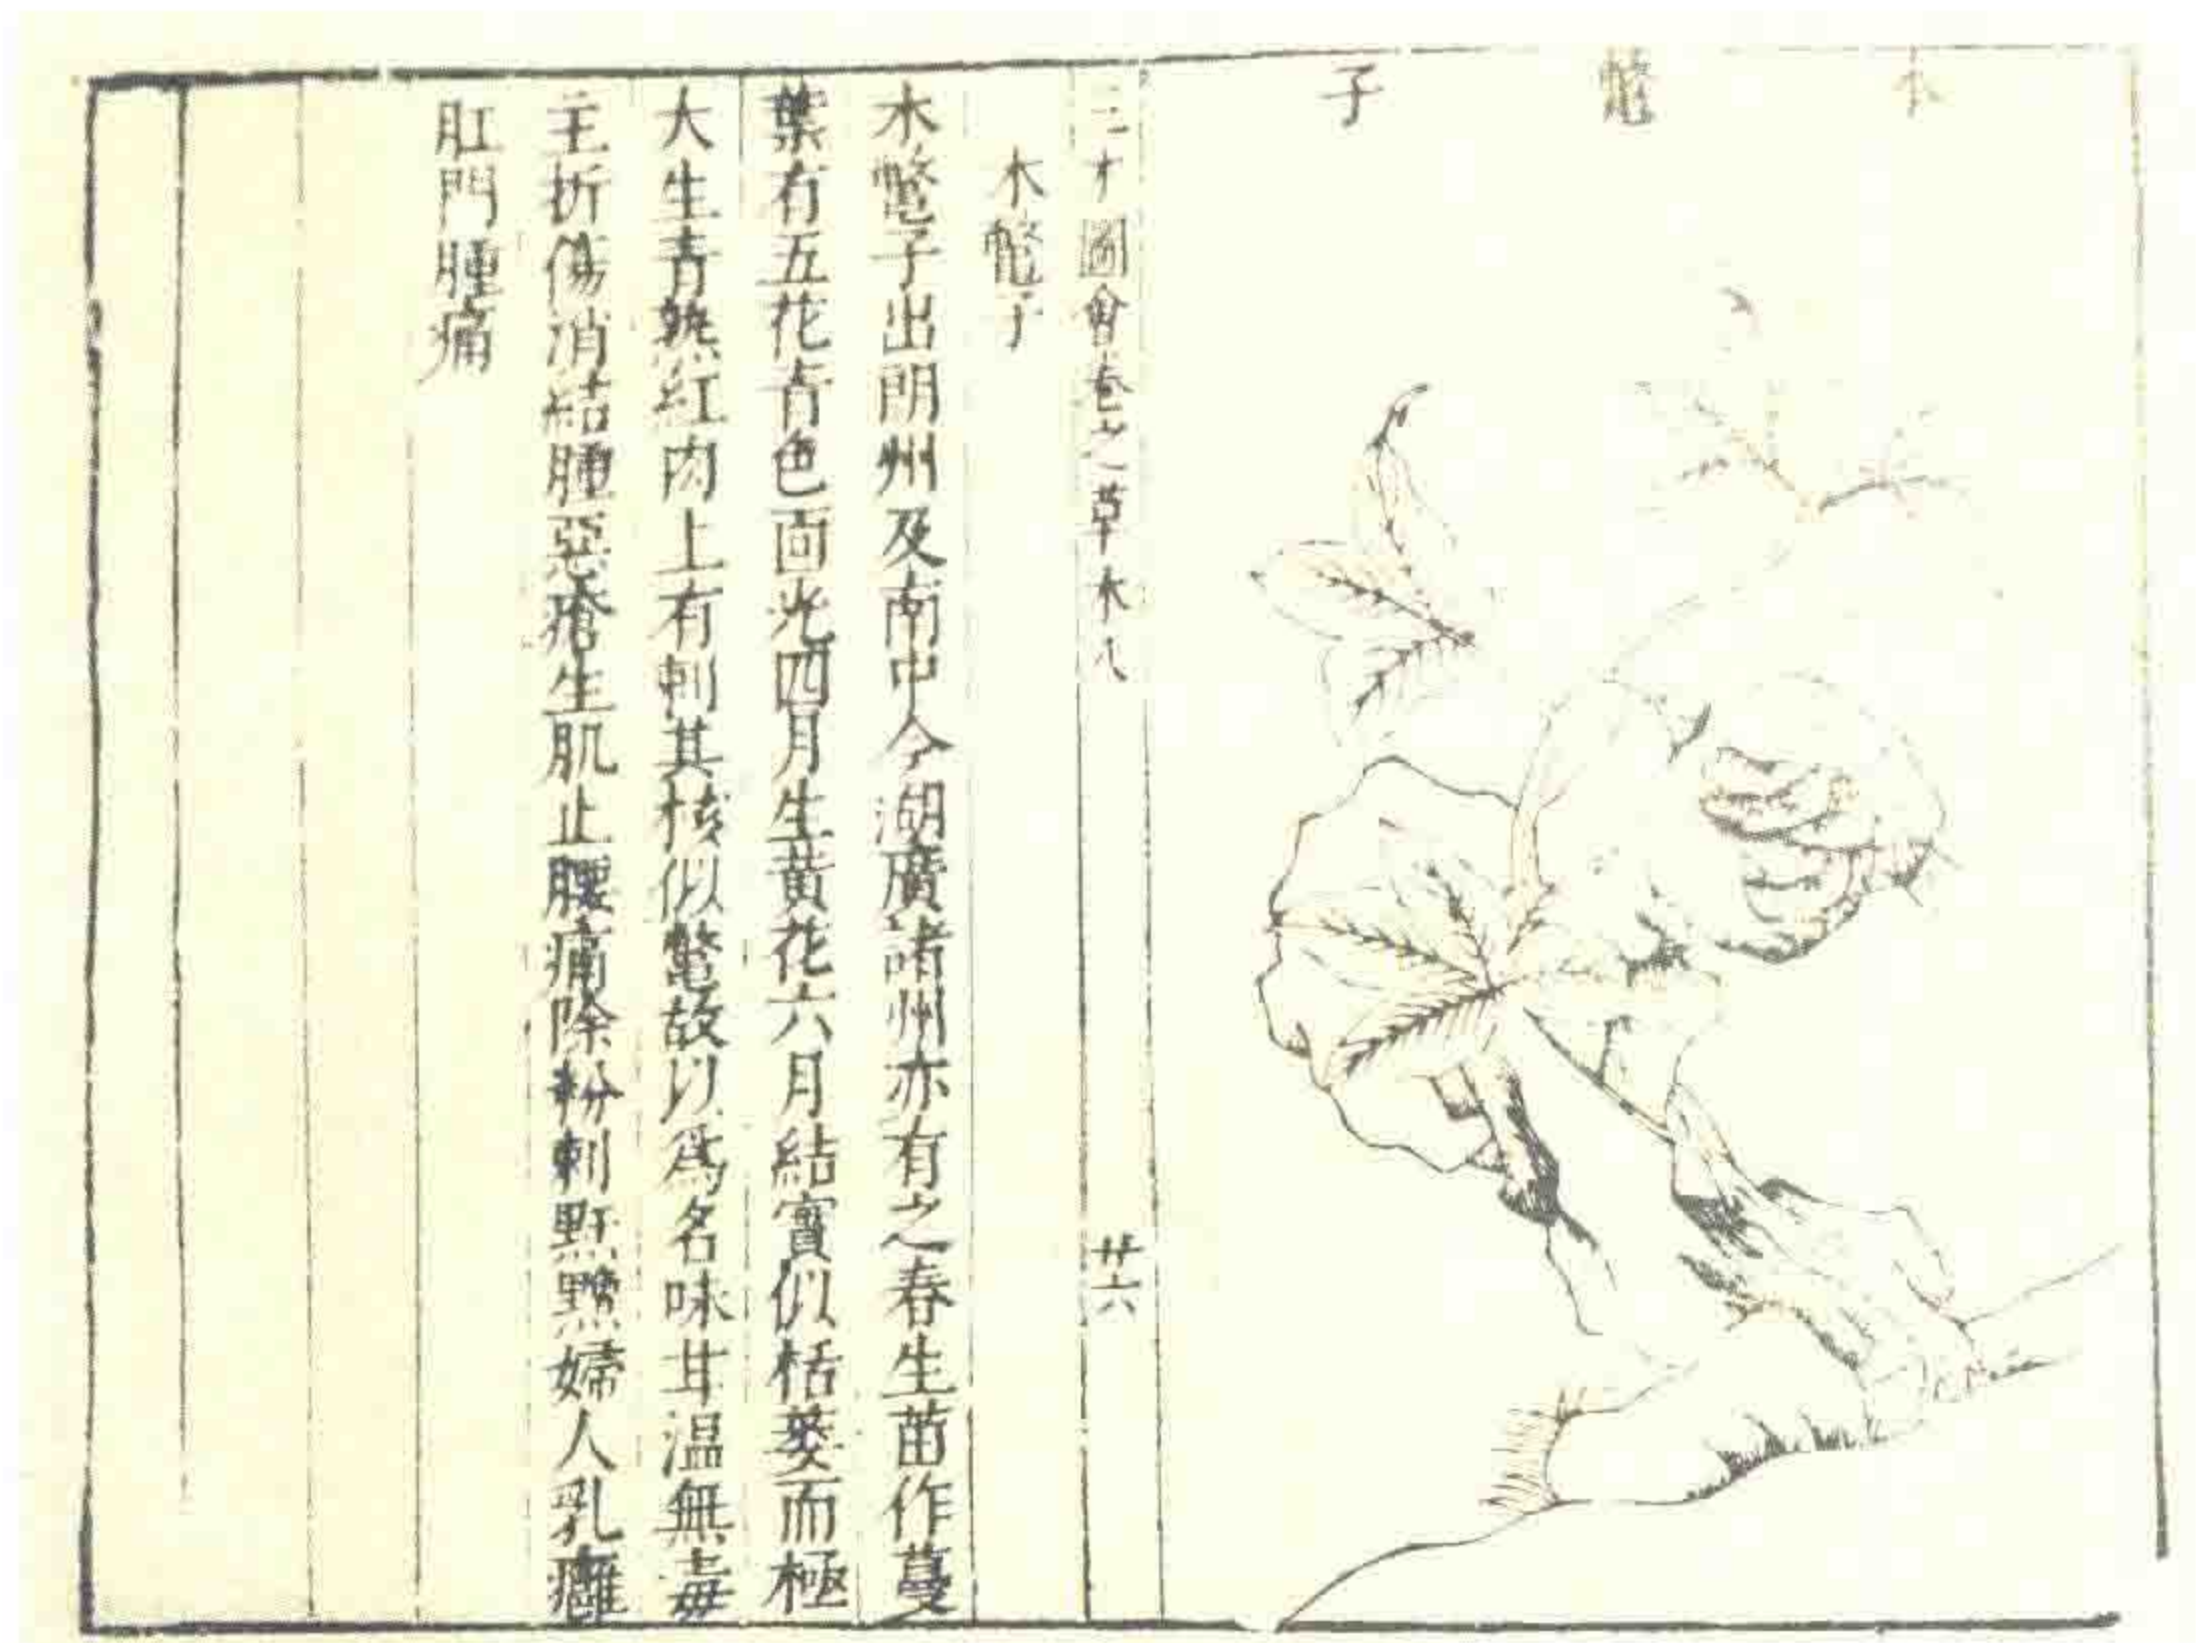 木鼈子
三才圖會卷之草木八
廿六
木鼈子
木鼈子出朗州及南中今湖廣諸州亦有之春生苗作蔓
葉有五花青色面光四月生黃花六月結實似栝蔞而極
大生青熟紅肉上有刺其核似鼈故以爲名味甘溫無毒
主折傷消結腫惡瘡生肌止腰痛除粉刺䵟黷婦人乳癰
肛門腫痛